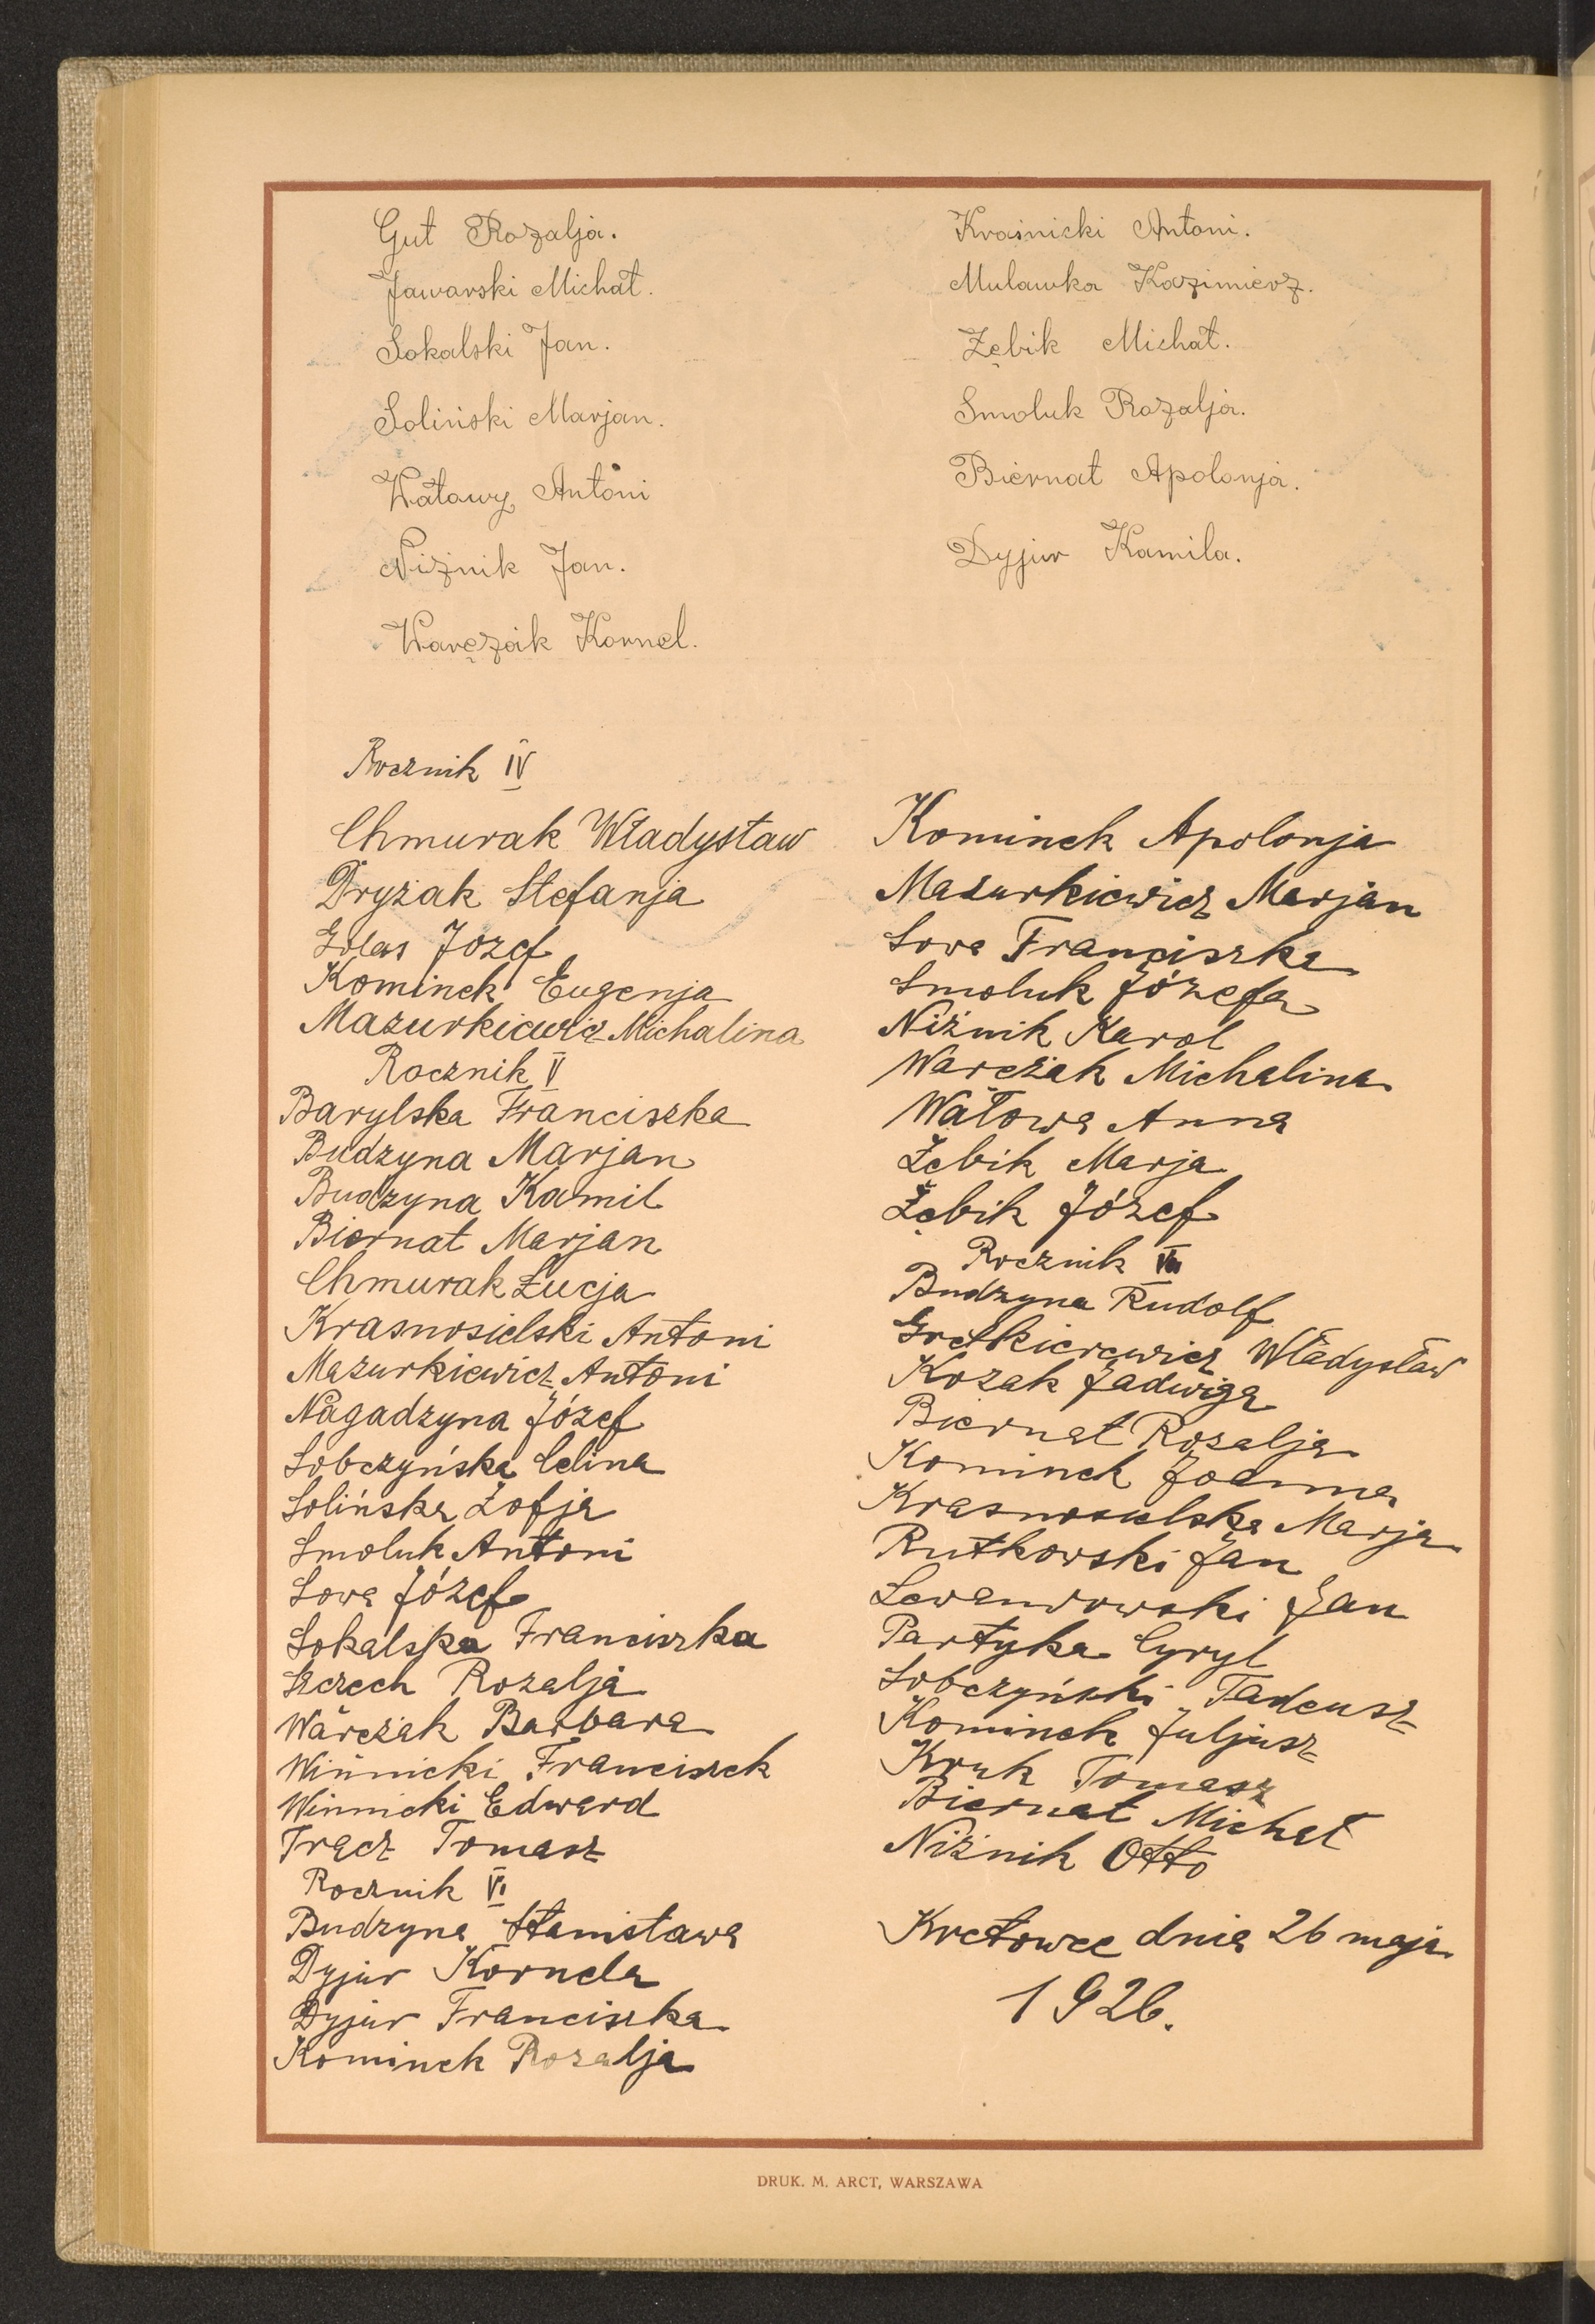 Gut Rozalja.
Jaworski Michał.
Sokalski Jan.
Soliński Marjan.
Watowy Antoni
Niżnik Jan.
Warężak Kornel.
Kraśnicki Antoni.
Mulawka Kazimierz.
Zębik Michał.
Smoluk Rozalja.
Biernat Apolonja.
Dyjur Kamila.
Rocznik IV
Chmurak Władysław
Dryzak Stefanja
Golas Józef
Kominek Eugenja
Mazurkiewicz Michalina
Rocznik V
Barylska Franciszka
Budzyna Marjan
Budzyna Kamil
Biernat Marjan
Chmurak Łucja
Krasnosielski Antoni
Mazurkiewicz Antoni
Nagadzyna Józef
Sobczyńska Celina
Solińska Zofja
Smoluk Antoni
Sowa Józef
Sokalska Franciszka
Szczech Rozalja
Warężak Barbara
Winnicki Franciszek
Winnicki Edward
Tracz Tomasz
Rocznik VI
Budzyna Stanisława
Dyjur Kornela
Dyjur Franciszka
Kominek Rozalja
Kominek Apolonja
Mazurkiewicz Marjan
Sowa Franciszka
Smoluk Józefa
Niżnik Karol
Warężak Michalina
Watowa Anna
Zębik Marja
Zębik Józef
Rocznik VII
Budzyna Rudolf
Władysław
Kozak Jadwiga
Biernat Rozalja
Kominek Joanna
Krasnosielska Marja
Rutkowski Jan
Lewandowski Jan
Partyka Cyryl
Sobczyński Tadeusz
Kominek Juljusz
Kruk Tomasz
Biernat Michał
Niżnik Otto
Kretowce dnia 26 maja
1926.
DRUK. M. ARCT, WARSZAWA